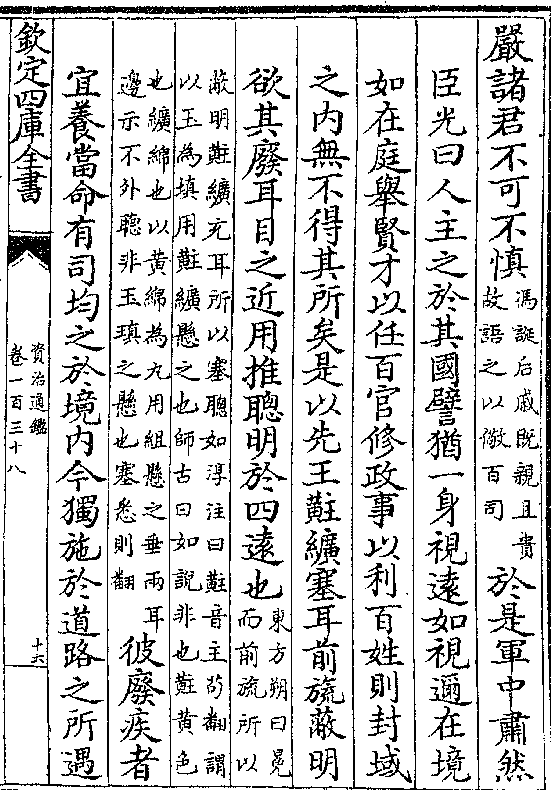 嚴諸君不可不慎
馮誕后戚既親且貴
故語之以儆百司
於是軍中肅然
臣光曰人主之於其國譬猶一身視遠如視邇在境
如在庭舉賢才以任百官修政事以利百姓則封域
之内無不得其所矣是以先王黈纊塞耳前旒蔽明
欲其廢耳目之近用推聰明於四遠也
東方朔曰冕
而前旒所以
蔽明黈纊充耳所以塞聰如淳注曰黈音主苟翻謂
以玉為填用黈纊懸之也師古曰如說非也黈黄色
也纊綿也以黄綿為丸用組懸之垂兩耳
邊示不外聽非玉瑱之懸也塞悉則翻
彼廢疾者
宜養當命有司均之於境内今獨施於道路之所遇
欽定四庫全書
資治通鑑
卷一百三十八
十六